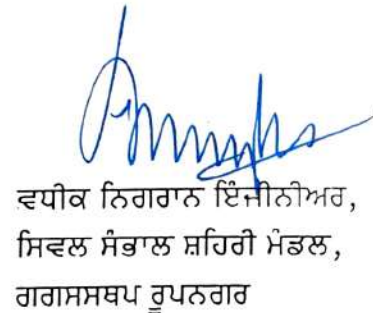 ਵਧੀਕ ਨਿਗਰਾਨ ਇੰਜੀਨੀਅਰ,
ਸਿਵਲ ਸੰਭਾਲ ਸ਼ਹਿਰੀ ਮੰਡਲ,
ਗਗਸਸਥਪ ਰੂਪਨਗਰ